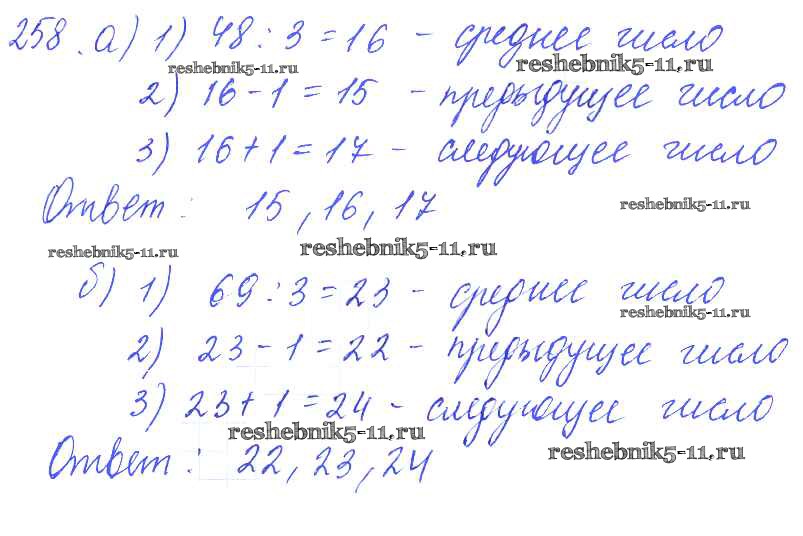 258. а) 1) 48 : 3 = 16 - среднее число
reshebnik5-11.ru reshebnik5-11.ru
2) 16 - 1 = 15 - предыдущее число
3) 16 + 1 = 17 - следующее число
Ответ: 15, 16, 17 reshebnik5-11.ru
reshebnik5-11.ru reshebnik5-11.ru
б) 1) 69 : 3 = 23 - среднее число
reshebnik5-11.ru
2) 23 - 1 = 22 - предыдущее число
3) 23 + 1 = 24 - следующее число
reshebnik5-11.ru reshebnik5-11.ru
Ответ: 22, 23, 24